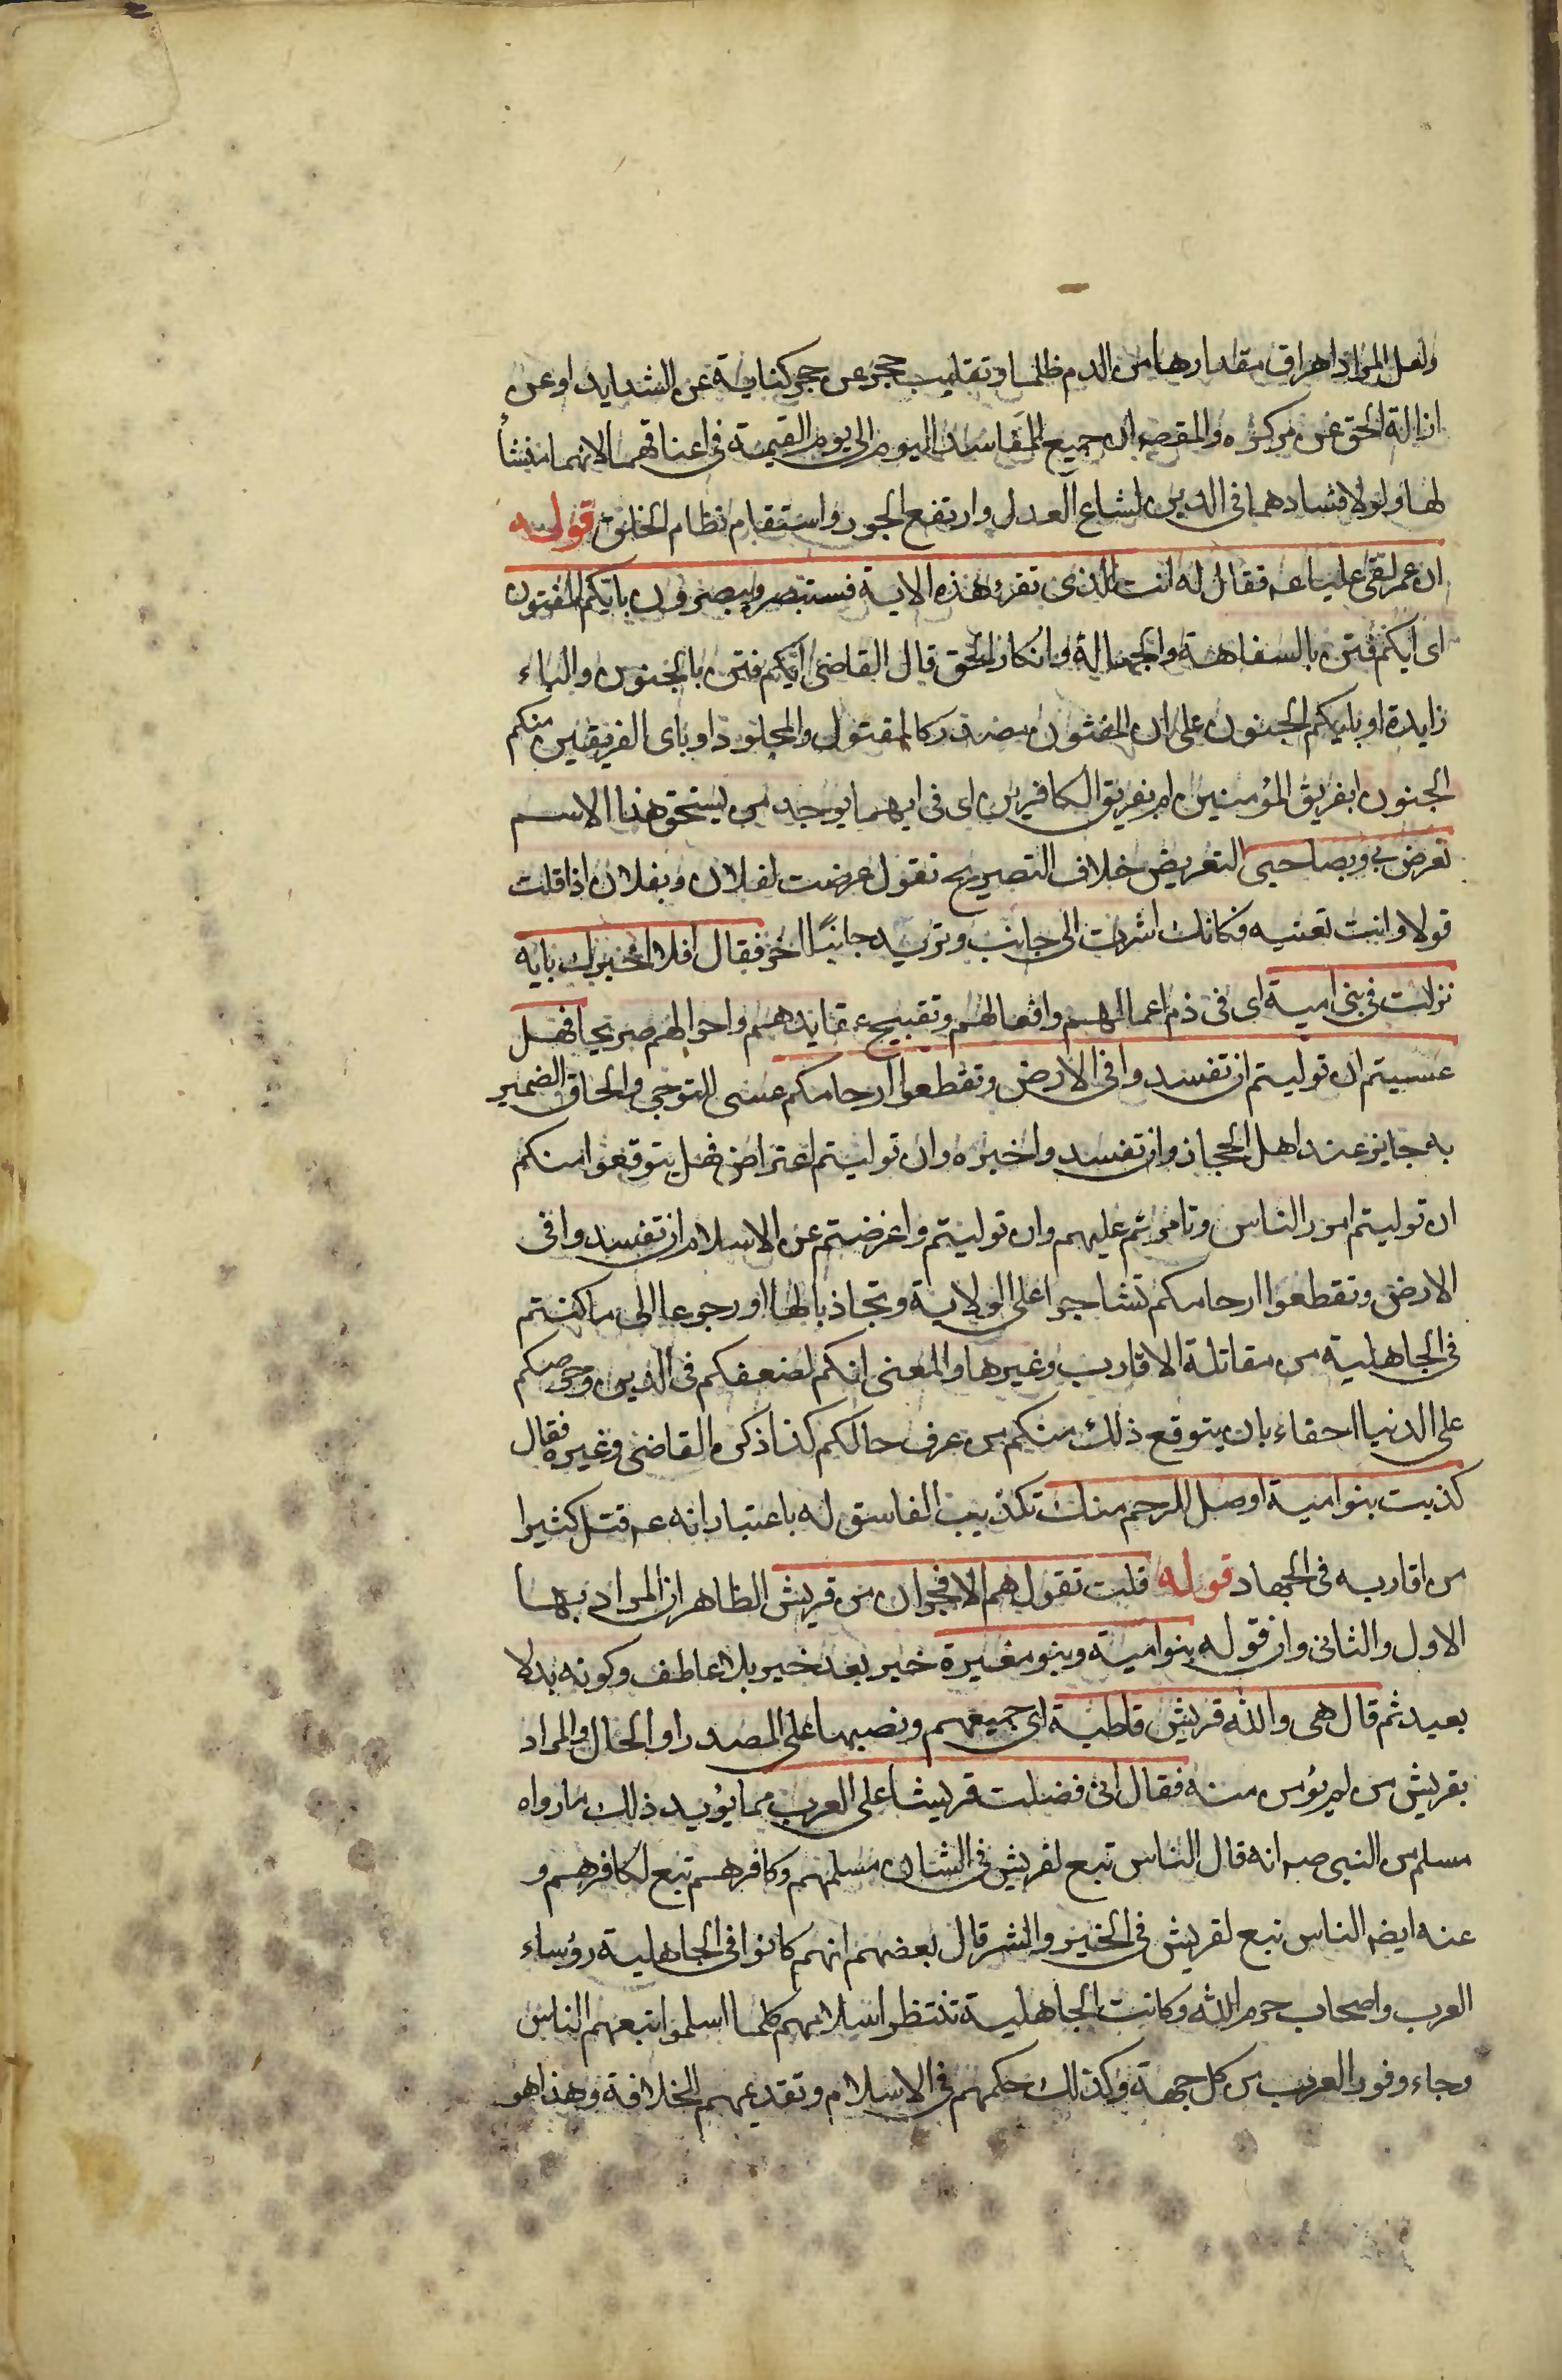 ولعل المراد اهراق مقدارها من الدم ظلما وتقليب حجر عن حجر كناية عن الشدايد او عن
ازالة الحق عن مركزه والمقصد ان جميع المفاسد اليوم الى يوم القيمة فى اعناقهما لانهما منشأ
لها ولولا فسادهما فى الدين لشاع العدل وارتفع الجور واستقام نظام الخلق قوله
ان عمر لقى عليا عم فقال له انت الذى تقرء هذه الاية فستبصر ويبصرون بايكم المفتون
اى ايكم فتن بالسفاهة والجهالة وانكار الحق قال القاضى ايكم فتن بالجنون والباء
زايدة او بايكم الجنون على ان المفتون مصدر كالمفتول والمجلود او باى الفريقين منكم
الجنون ابفريق المؤمنين ام بفريق الكافرين اى فى ايهما يوجد من يستحق هذا الاسم
تعرض بى وبصاحبى التعريض خلاف التصريح تقول عرضت لفلان وبفلان اذا قلت
قولا وانت تعنيه فكانك اشرت الى جانب وتريد جانبًا اخر فقال افلا اخبرك باية
نزلت فى بنى امية اى فى ذم اعمالهم وافعالهم وتقبيح عقايدهم واحوالهم صريحا فهل
عسيتم ان توليتم ان تفسدوا فى الارض وتقطعوا ارحامكم عسى للتوخى والحاق الضمير
به جايز عند اهل الحجاز وان تفسدوا خبره وان توليتم اعتراض فهل يتوقعوا منكم
ان توليتم امور الناس وتامرتم عليهم وان توليتم واعرضتم عن الاسلام ان تفسدوا فى
الارض وتقطعوا ارحامكم تشاجرا على الولاية وتجاذبا لها او رجوعا الى ما كنتم
فى الجاهلية من مقاتلة الاقارب وغيرها والمعنى انكم لضعفكم فى الدين وحرصكم
على الدنيا احقاء بان يتوقع ذلك منكم من عرف حالكم كذا ذكره القاضى وغيره فقال
كذبت بنو امية اوصل للرحم منك تكذيب الفاسق له باعتبار انه عم قتل كثيرا
من اقاربه فى الجهاد قوله قلت تقول هم الافجران من قريش الظاهر ان المراد بهما
الاول والثانى وان قوله بنو امية وبنو مغيرة خبر بعد خبر بلا عاطف وكونه بدلا
بعيد ثم قال هى والله قريش قاطبة اى جميعهم ونصبها على المصدر او الحال والمراد
بقريش من لم يؤمن منه فقال انى فضلت قريشا على العرب مما يؤيد ذلك ما رواه
مسلم من النبى صم انه قال الناس تبع لقريش فى الشان مسلمهم وكافرهم تبع لكافرهم و
عنه ايضا الناس تبع لقريش فى الخير والشر قال بعضهم انهم كانوا فى الجاهلية رؤساء
العرب واصحاب حرم الله وكانت الجاهلية تنتظر اسلامهم كلما اسلموا تبعهم الناس
وجاء وفود العرب من كل جهة وكذلك حكمهم فى الاسلام وتقديمهم الخلافة وهذا هو